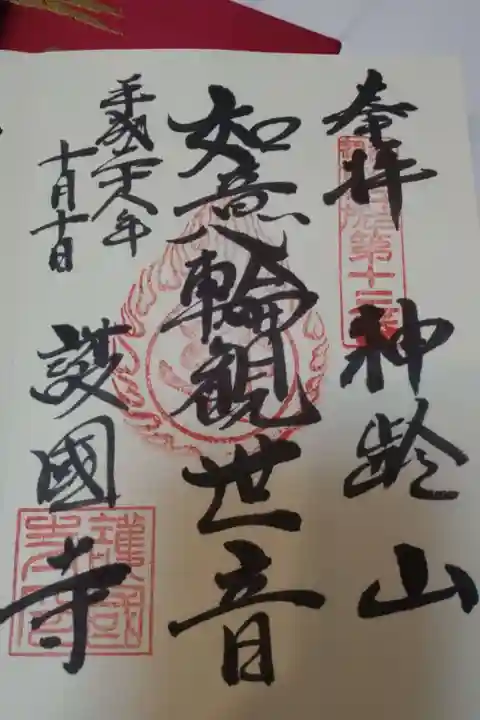 奉拝 神齢山
第十三
如意輪観世音
平成二十八年
十月十日
護國寺
護國